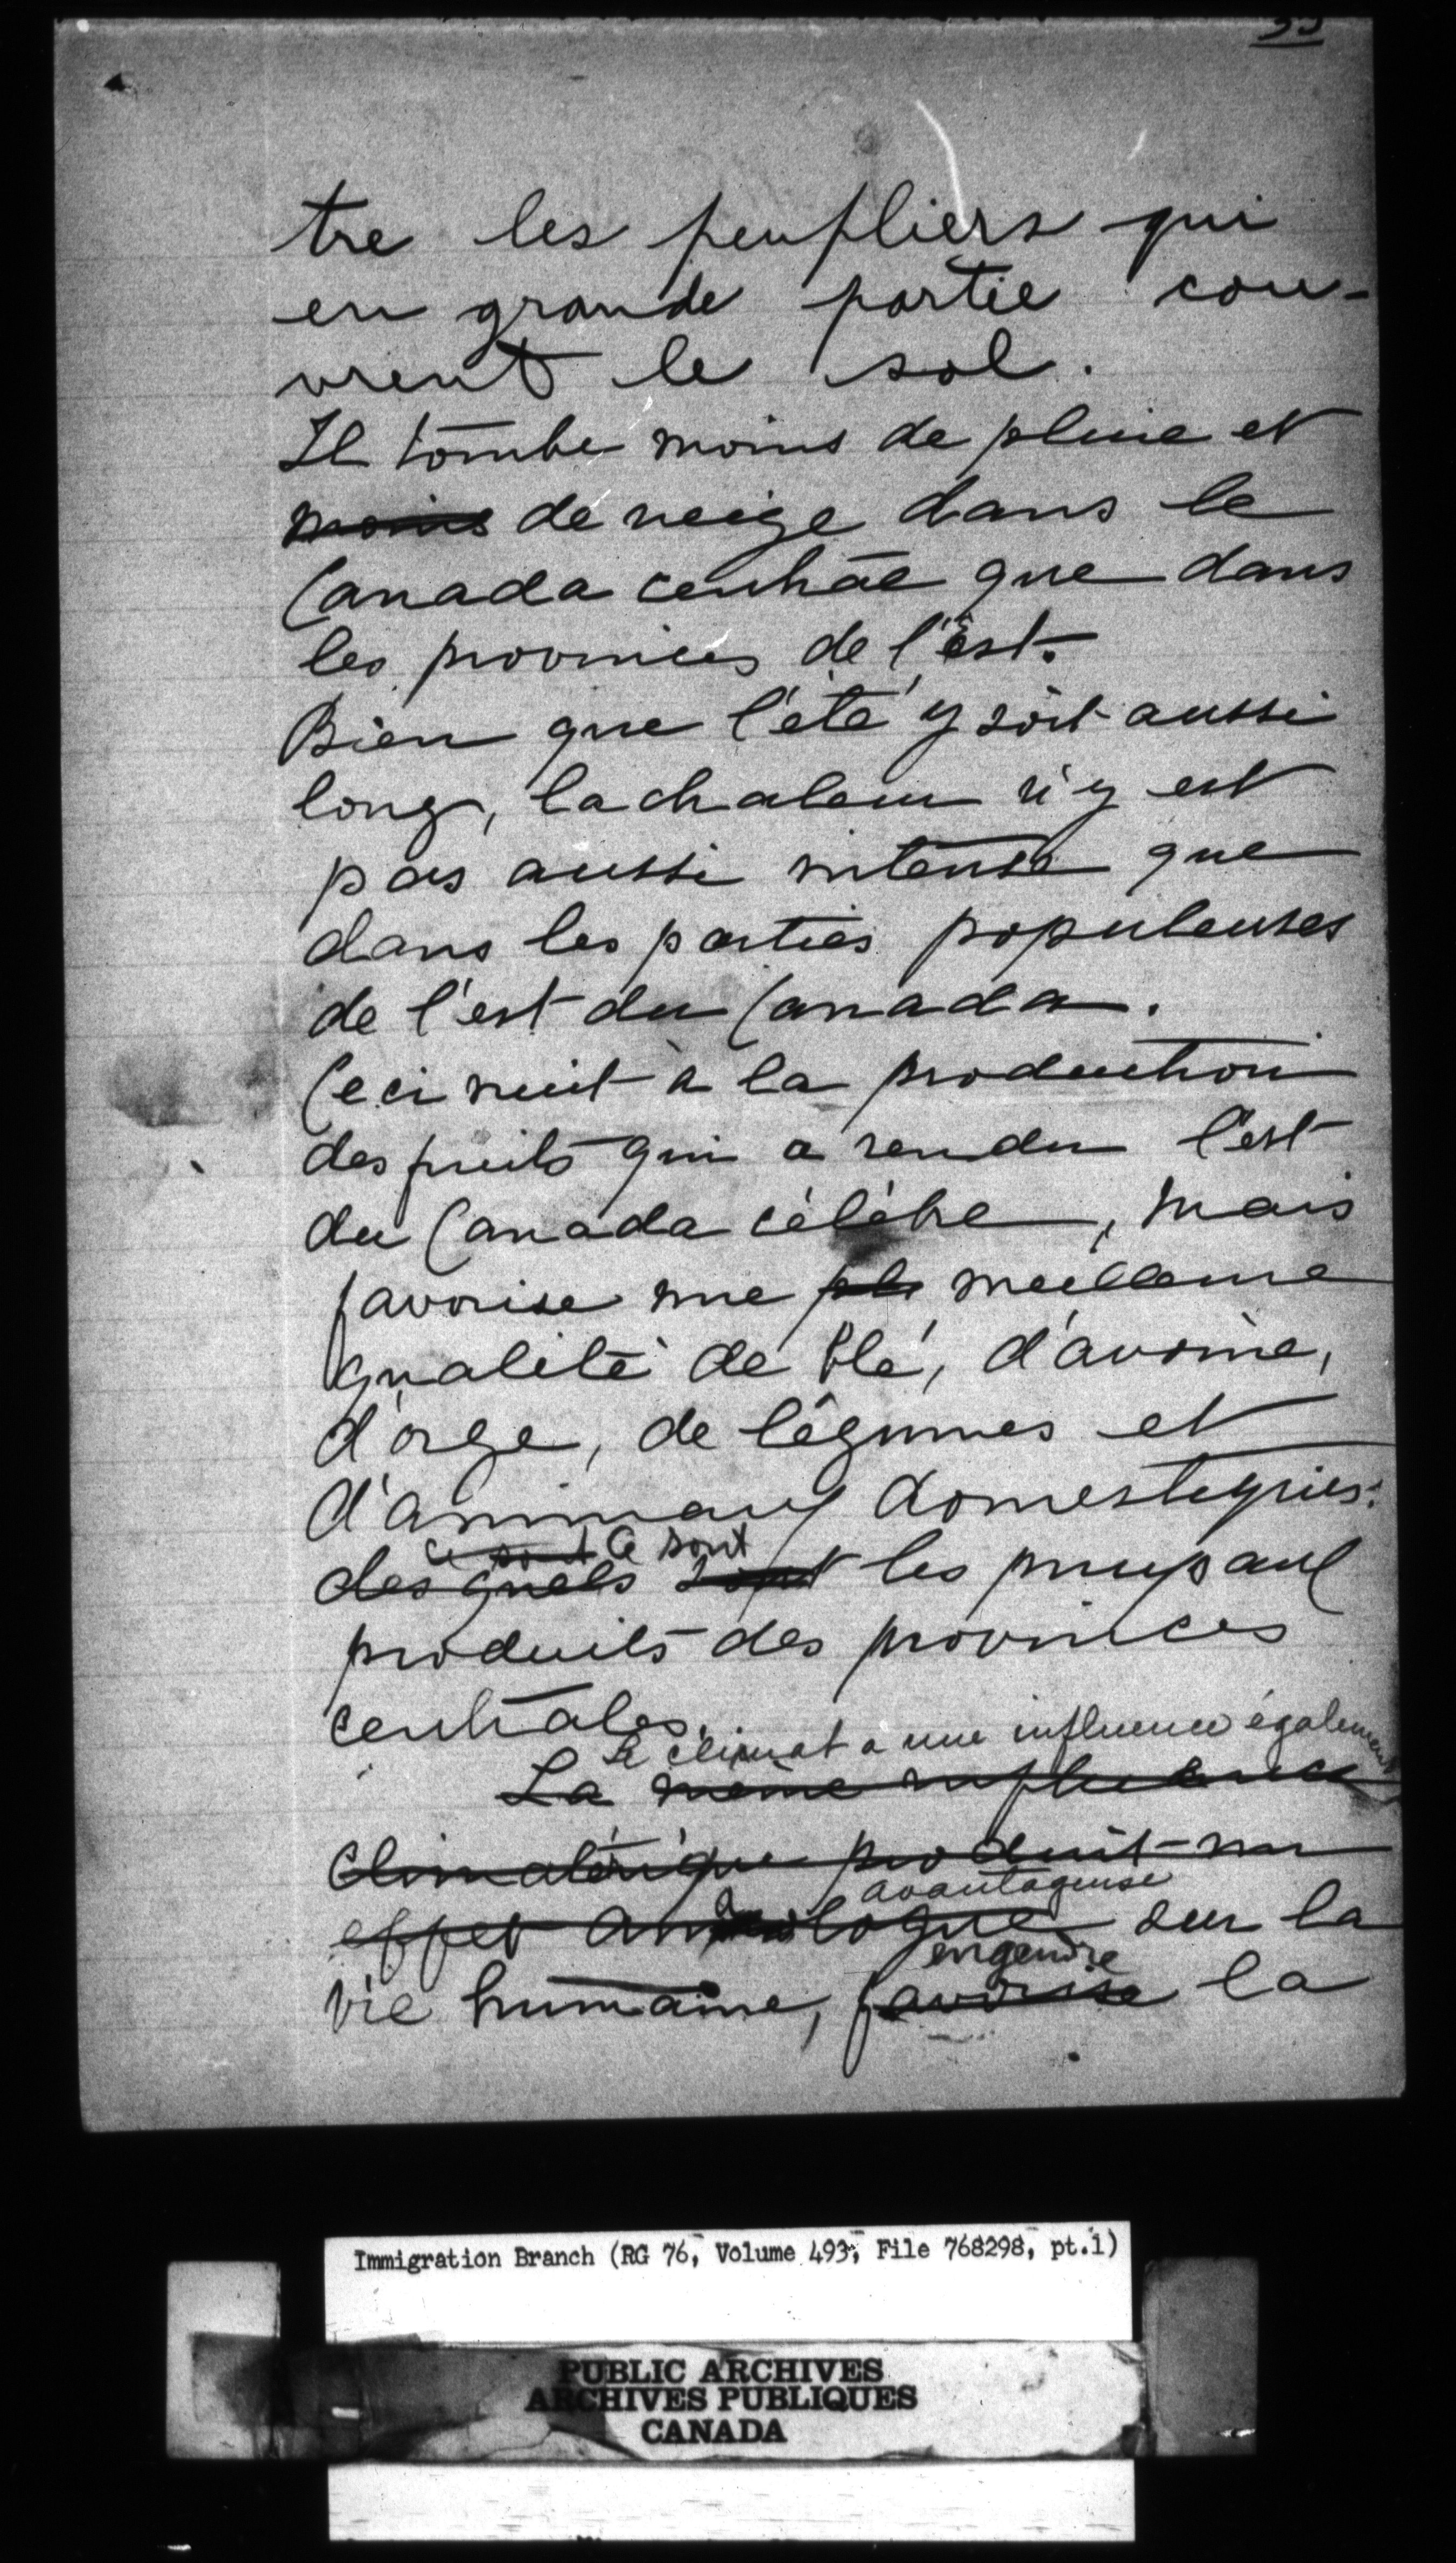 tre les peupliers qui
en grande partie cou-
vrent le sol.
Il tombe moins de pluie et
moins de neige dans le
Canada central que dans
les provinces de l'est.
Bien que l'été y soit aussi
long, la chaleur n'y est
pas aussi intense que
dans les parties populeuses
de l'est du Canada.
Ceci nuit à la production
des fruits qui a rendu l'est
du Canada célèbre, mais
favorise une plu meilleure
qualité de blé, d'avoine,
d'orge, de légumes et
d'animaux domestiques:
ce sont ce sont
desquels sont les principaux
produits des provinces
centrales.
Le climat a une influence également
La même influence
climatérique produit un
avantageuse
effet analogue sur la
engendre
vie humaine, favorise la
Immigration Branch (RG 76, Volume 493, File 768298, pt.1)
PUBLIC ARCHIVES
ARCHIVES PUBLIQUES
CANADA